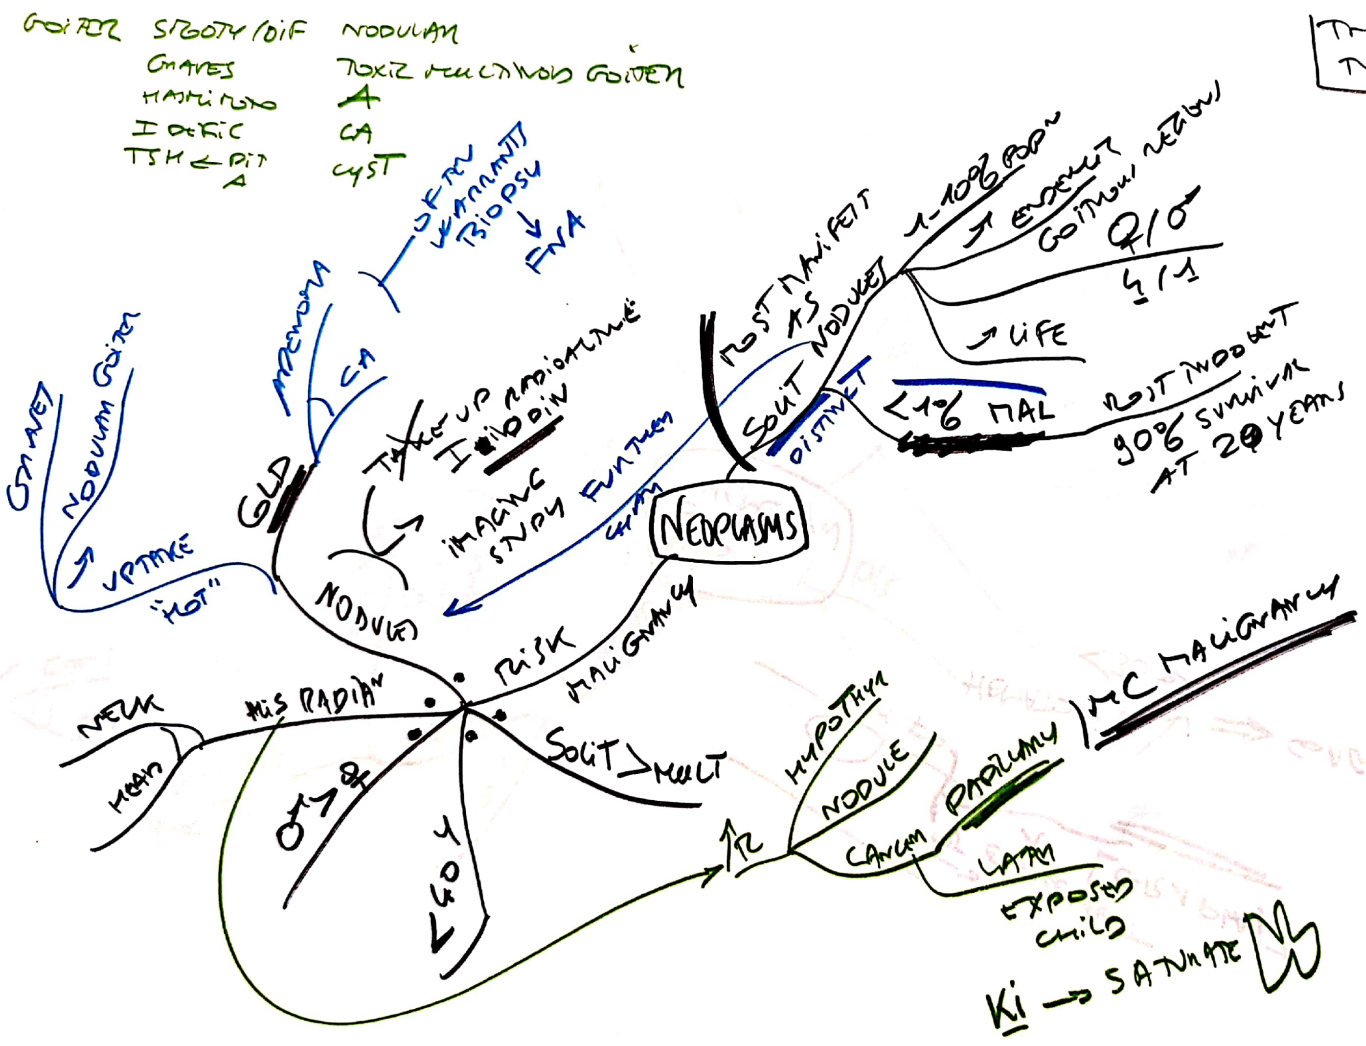 GOITER SMOOTH/DIF NODULAR
GRAVES TOXIC MULTINOD GOITER
HASHIMOTO A
I DEFIC CA
TSH ← PIT CYST
A
OFTEN
WARRANTS
BIOPSY
↓
FNA
ADENOMA
CA
GRAVES
NODULAR GOITER
↗ UPTAKE
"HOT"
COLD
NODULES
TAKE-UP RADIOACTIVE
IODIN
IMAGING
STUDY
FURTHER
CHAR
MOST MANIFEST
AS
SOLIT NODULES
DISTINCT
1-10% POPN
↗ ENDEMIC
GOITROUS REGIONS
♀/♂
4/1
↗ LIFE
<1% MAL
MOST INDOLENT
90% SURVIVAL
AT 20 YEARS
NEOPLASMS
RISK
MALIGNANCY
HIS RADIAN
NECK
HEAD
♂ > ♀
< 40 Y
SOLIT > MULT
↑R
HYPOTHYR
NODULE
CANCER
PAPILLARY
MC MALIGNANCY
LATER
EXPOSED
CHILD
KI → SATURATE